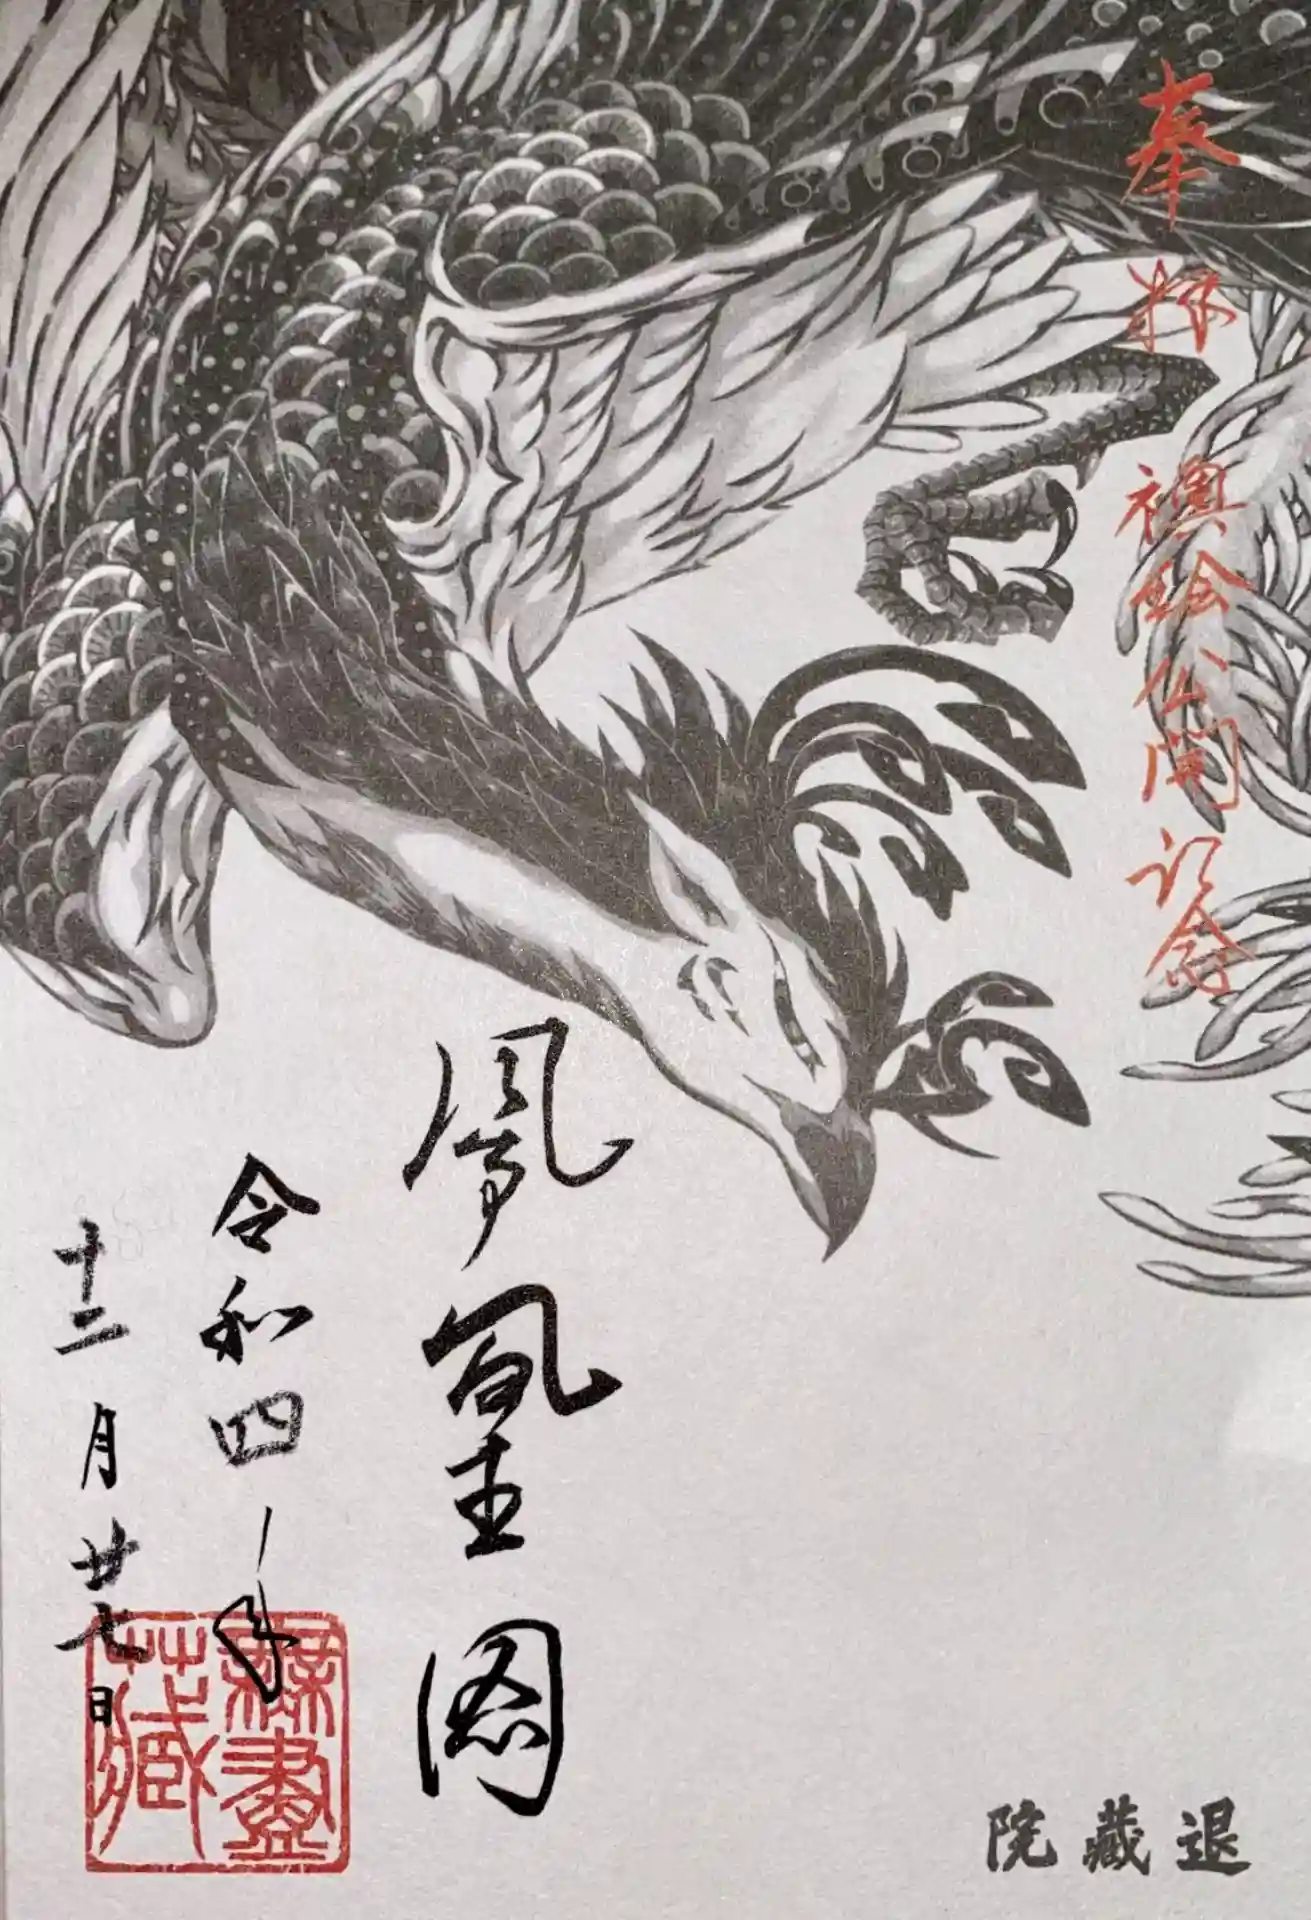 奉拝
襖絵公開記念
鳳凰図
令和四年
十二月廿七日
退蔵院